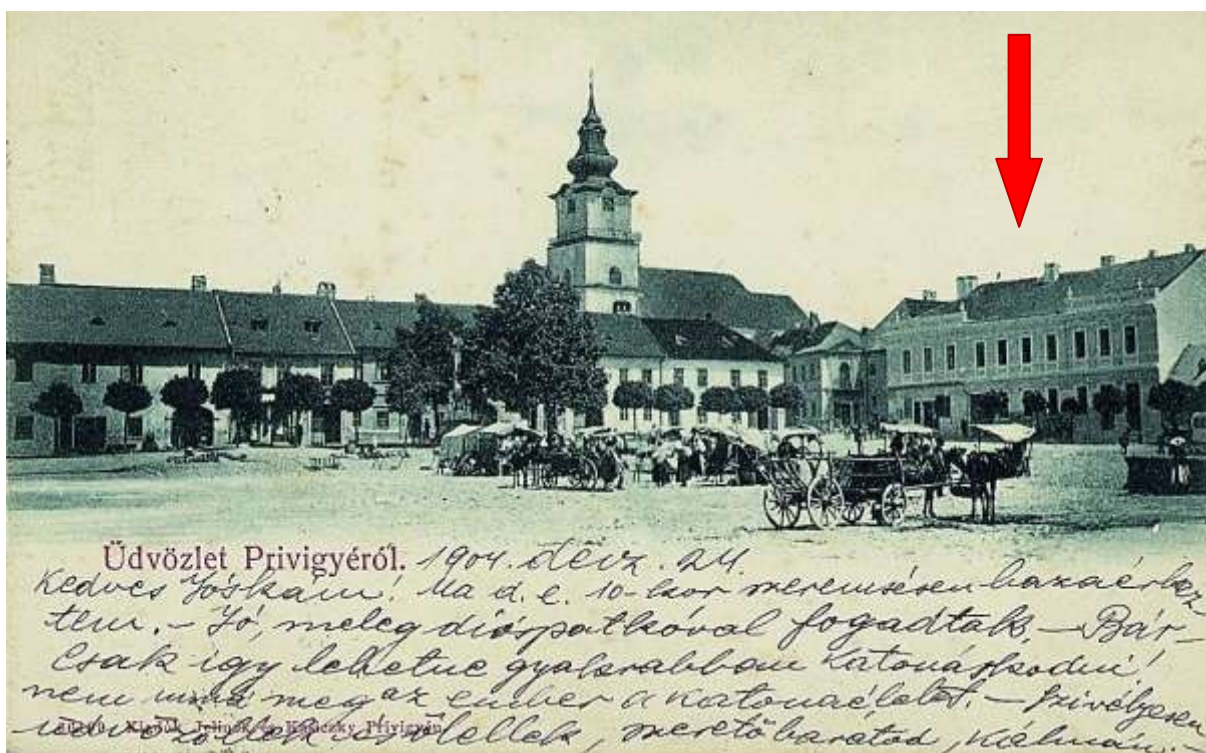 Üdvözlet Privigyéről. 1904. decz. 24.
Kedves Jóskám! Ma d. e. 10-kor szerencsésen hazaérkez
tem. – Jó, meleg dióspatkóval fogadtak. – Bár-
csak így lehetne gyakrabban katonáskodni!
nem unná meg az ember a katonaéletet. – Szívélyesen
Kiadók Jelinek és Privigyén
ölellek, szerető barátod, Kálmán